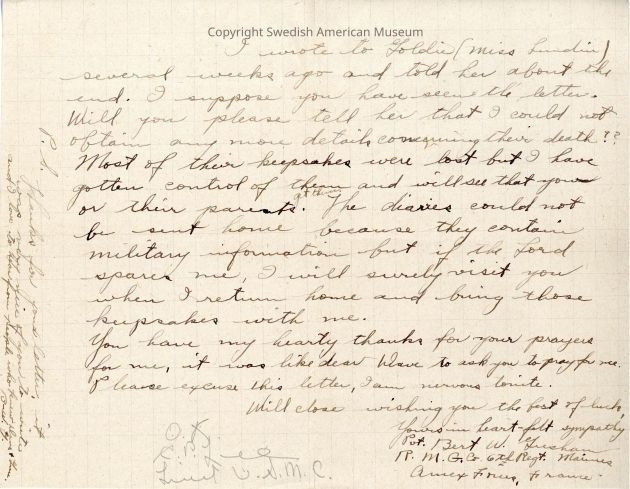 Copyright Swedish American Museum
I wrote to Goldie (Miss Lundin)
several weeks ago and told her about the
end. I suppose you have seen the letter.
Will you please tell her that I could not
obtain any more details concerning their death??
Most of their keepsakes were lost but I have
gotten control of them and will see that you
or their parents get them. The diaries could not
be sent home because they contain
military information but if the Lord
spares me, I will surely visit you
when I return home and bring those
keepsakes with me.
You have my hearty thanks for your prayers
for me, it was like dear to ask you to pray for me.
Please excuse this letter, I am nervous tonite.
Will close wishing you the best of luck,
Yours in heart-felt sympathy
Pvt. Bert W.
R. M. G. Co. 6th Regt. Marines
Amex Forces, France
P.S. Thanks for your letter, it
was very nice of you to write
and I love to hear from people who
O.K.
Lieut U.S.M.C.